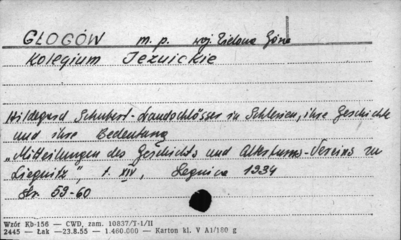 GŁOGÓW m. p. woj. Zielona Góra
Kolegium Jezuickie
Hildegard Schubert - Landschlösser in Schlesien, ihre Geschichte
und ihre Bedeutung
„Mitteilungen des Geschichts und Altertums-Vereins zu
Liegnitz", t. XIV, Legnica 1934
Str. 59-60
Wzór Kb-156 — CWD, zam. 10837/T-1/II
2445 — Łak —23.8.55 — 1.460.000 — Karton kl. V A1/180 g